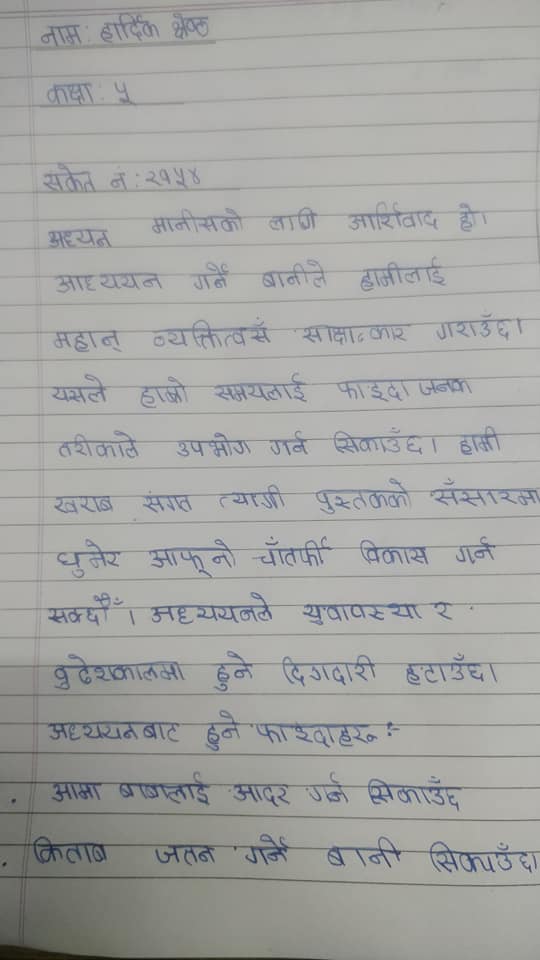 नाम: हार्दिक श्रेष्ठ
कक्षा: ५
संकेत नं: २१५४
अध्यन मानीसको लागी आर्शिवाद हो।
आध्ययन गर्ने बानीले हामीलाई
महान् व्यक्तित्वसँ साक्षात्कार गराउँछ।
यसले हाम्रो समयलाई फाइदाजनक
तरीकाले उपभोग गर्न सिकाउँछ। हामी
खराब संगत त्यागी पुस्तकको सँसारमा
घुमेर आफ्नो चौँतर्फी विकास गर्न
सक्दछौँ। अध्ययनले युवावस्था र
वुढेशकालमा हुने दिगदारी हटाउँछ।
अध्ययनबाट हुने फाइदाहरू :-
. आमा बाबालाई आदर गर्न सिकाउँछ
. किताब जतन गर्ने बानी सिकाउँछ।